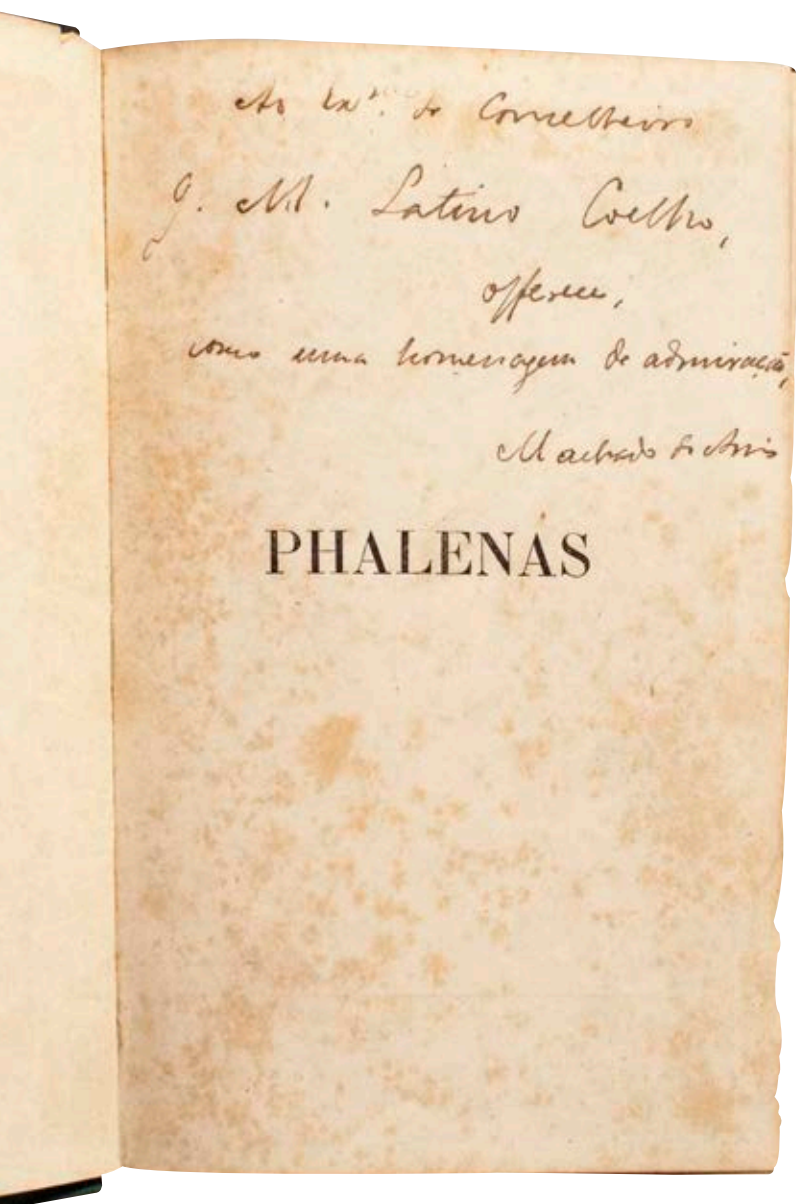 Ao Exº. Sr Conselheiro
J. M. Latino Coelho,
offerece,
como uma homenagem de admiração,
Machado de Assis
PHALENAS